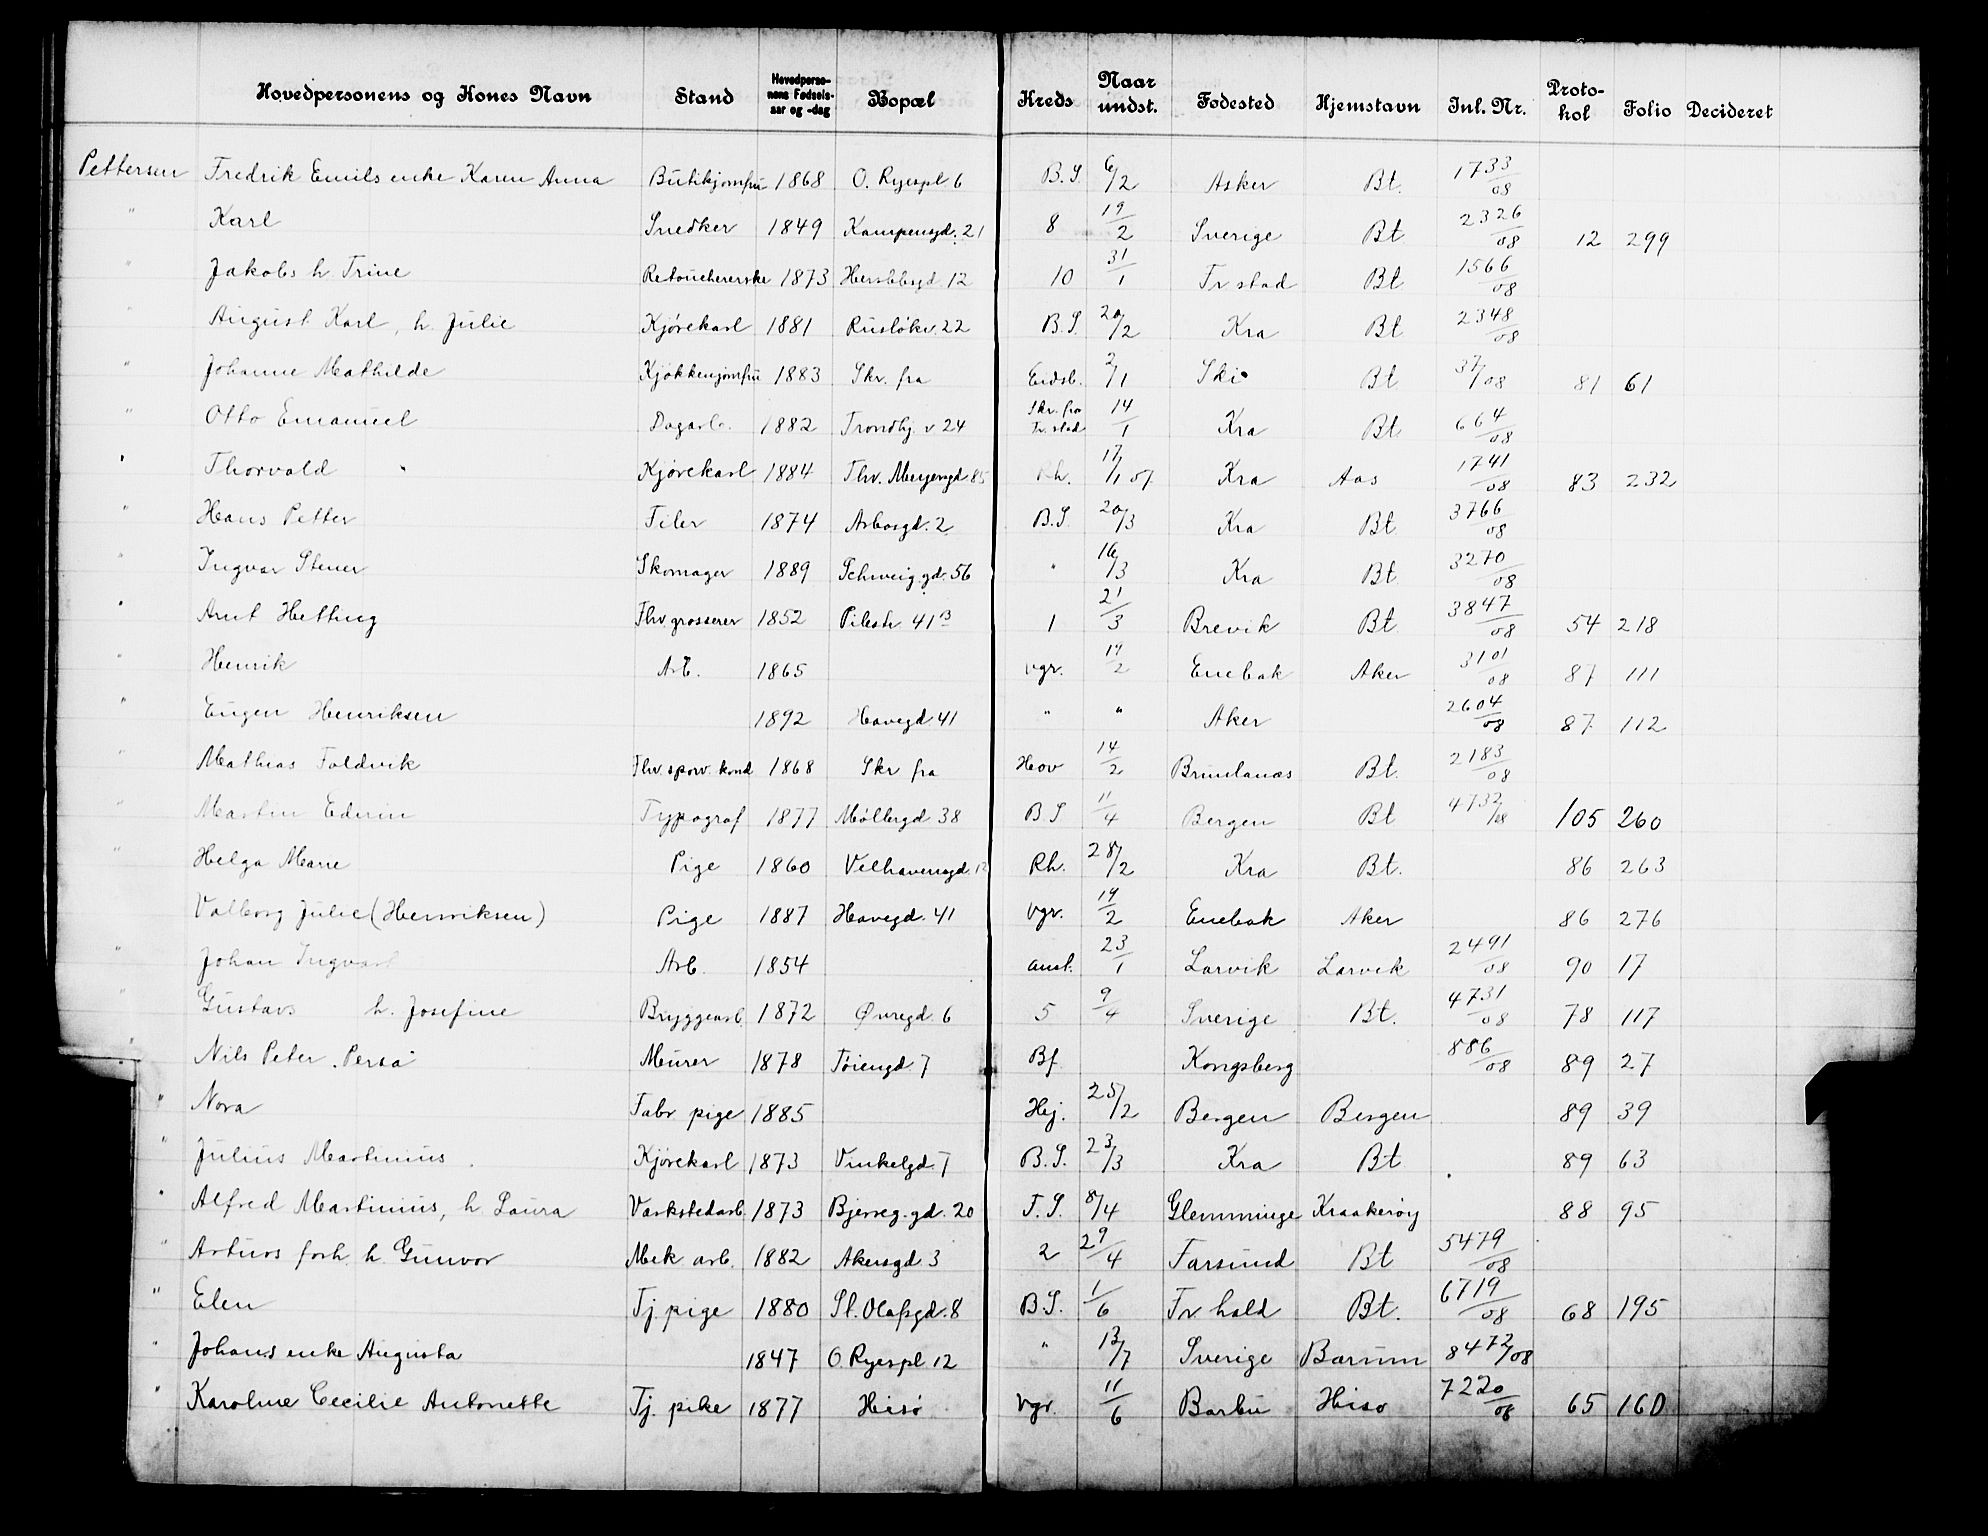 Hovedpersonens og Kones Navn Stand Hovedpersonens Fødselsaar og -dag Bopæl Kreds Naar undst. Fødested Hjemstavn Inl. Nr. Protokol Folio Decideret
Pettersen Fredrik Emils enke Karen Anna Butikjomfru 1868 O. Ryespl 6 B.S. 6/2 Asker Bt. 1733/08
" Karl Snedker 1849 Kampensgd. 21 8 19/2 Sverige Bt 2326/08 12 299
" Jakobs h. Trine Retouchererske 1873 Herslebsgd. 12 10 31/1 Fr stad Bt 1566/08
" August Karl, h. Julie Kjørekarl 1881 Rusløkv. 22 B.S. 20/2 Kra Bt 2348/08
" Johanne Mathilde Kjøkkenjomfru 1883 Skr. fra Eidsb. 2/1 Ski Bt 37/08 81 61
" Otto Emanuel Dagarb. 1882 Trondhj. v 24 Skr. fra Fr. stad 14/1 Kra Bt 664/08
" Thorvald " Kjørekarl 1884 Thv. Meyersgd 85 Rh. 17/1 07 Kra Aas 1741/08 83 232
" Hans Petter Filer 1874 Arbosgd. 2 B.S. 20/3 Kra Bt 3766/08
" Ingvar Stener Skomager 1889 Schweig. gd. 56 " 16/3 Kra Bt. 3270/08
" Arnt Hetting Fhv. grosserer 1852 Pilestr 41 B 1 21/3 Brevik Bt 3847/08 54 218
" Henrik Arb. 1865 vgr. 19/2 Enebak Aker 3101/08 87 111
" Eugen Henriksen 1892 Havegd. 41 " " Aker 2604/08 87 112
" Mathias Foldvik Fhv. sporv. kond 1868 Skr fra Hov 14/2 Brunlanæs Bt. 2183/08
" Martin Edvin Typograf 1877 Møllergd 38 B.S 11/4 Bergen Bt 4732/08 105 260
" Helga Marie Pige 1860 Velhavensgd. 12 Rh. 28/2 Kra Bt. 86 263
Valborg Julie (Henriksen) Pige 1887 Havegd. 41 vgr. 19/2 Enebak Aker 86 276
" Johan Ingvart Arb. 1854 anst. 23/1 Larvik Larvik 2491/08 90 17
" Gustavs h. Josefine Bryggearb. 1872 Øvregd. 6 5 9/4 Sverige Bt. 4731/08 78 117
" Nils Peter. Perså Murer 1878 Tøiengd 7 Bf. Kongsberg 886/08 89 27
" Nora Fabr pige 1885 Hej. 25/2 Bergen Bergen 89 39
" Julius Martinius. Kjørekarl 1873 Vinkelgd. 7 B.S. 23/3 Kra Bt 89 63
" Alfred Martinius, h. Laura Værkstedarb. 1873 Bjerreg. gd. 20 F.S. 8/4 Glemminge Kraakerøy 88 95
" Arturs forh. h. Gunvor Mek arb. 1882 Akersgd. 3 2 29/4 Farsund Bt 5479/08
" Elen Tj. pige 1880 St. Olafsgd. 8 B.S. 1/6 Fr. hald Bt. 6719/08 68 195
" Johans enke Augusta 1847 O. Ryespl 12 " 13/7 Sverige Bærum 8472/08
" Karoline Cecilie Antonette Tj. pike 1877 Hisø Vgr. 11/6 Barbu Hisø 7220/08 65 160